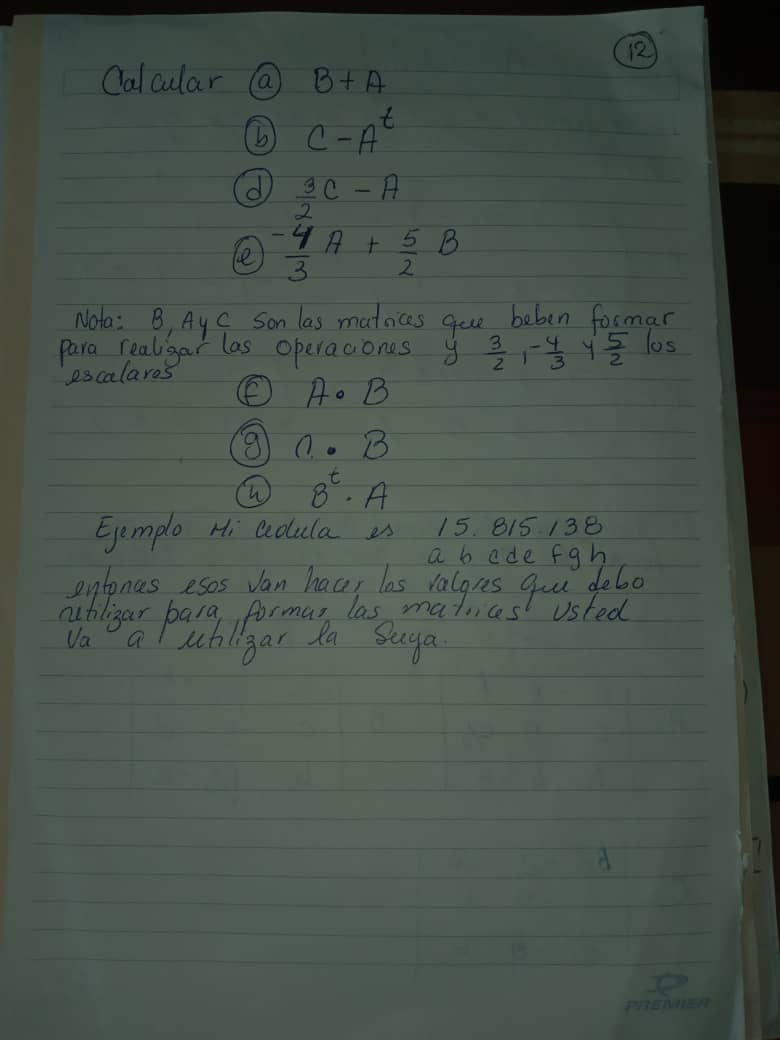 12
Calcular a B + A
b C - A^t
d 3/2 C - A
e -4/3 A + 5/2 B
Nota: B, A y C son las matrices que beben formar
para realizar las operaciones y 3/2, -4/3 y 5/2 los
escalares
f A • B
g • B
h B^t . A
Ejemplo Mi cedula es 15.815.138
a b c d e f g h
entonces esos van hacer los valores que debo
utilizar para formar las matrices usted
va a utilizar la suya.
PREMIER